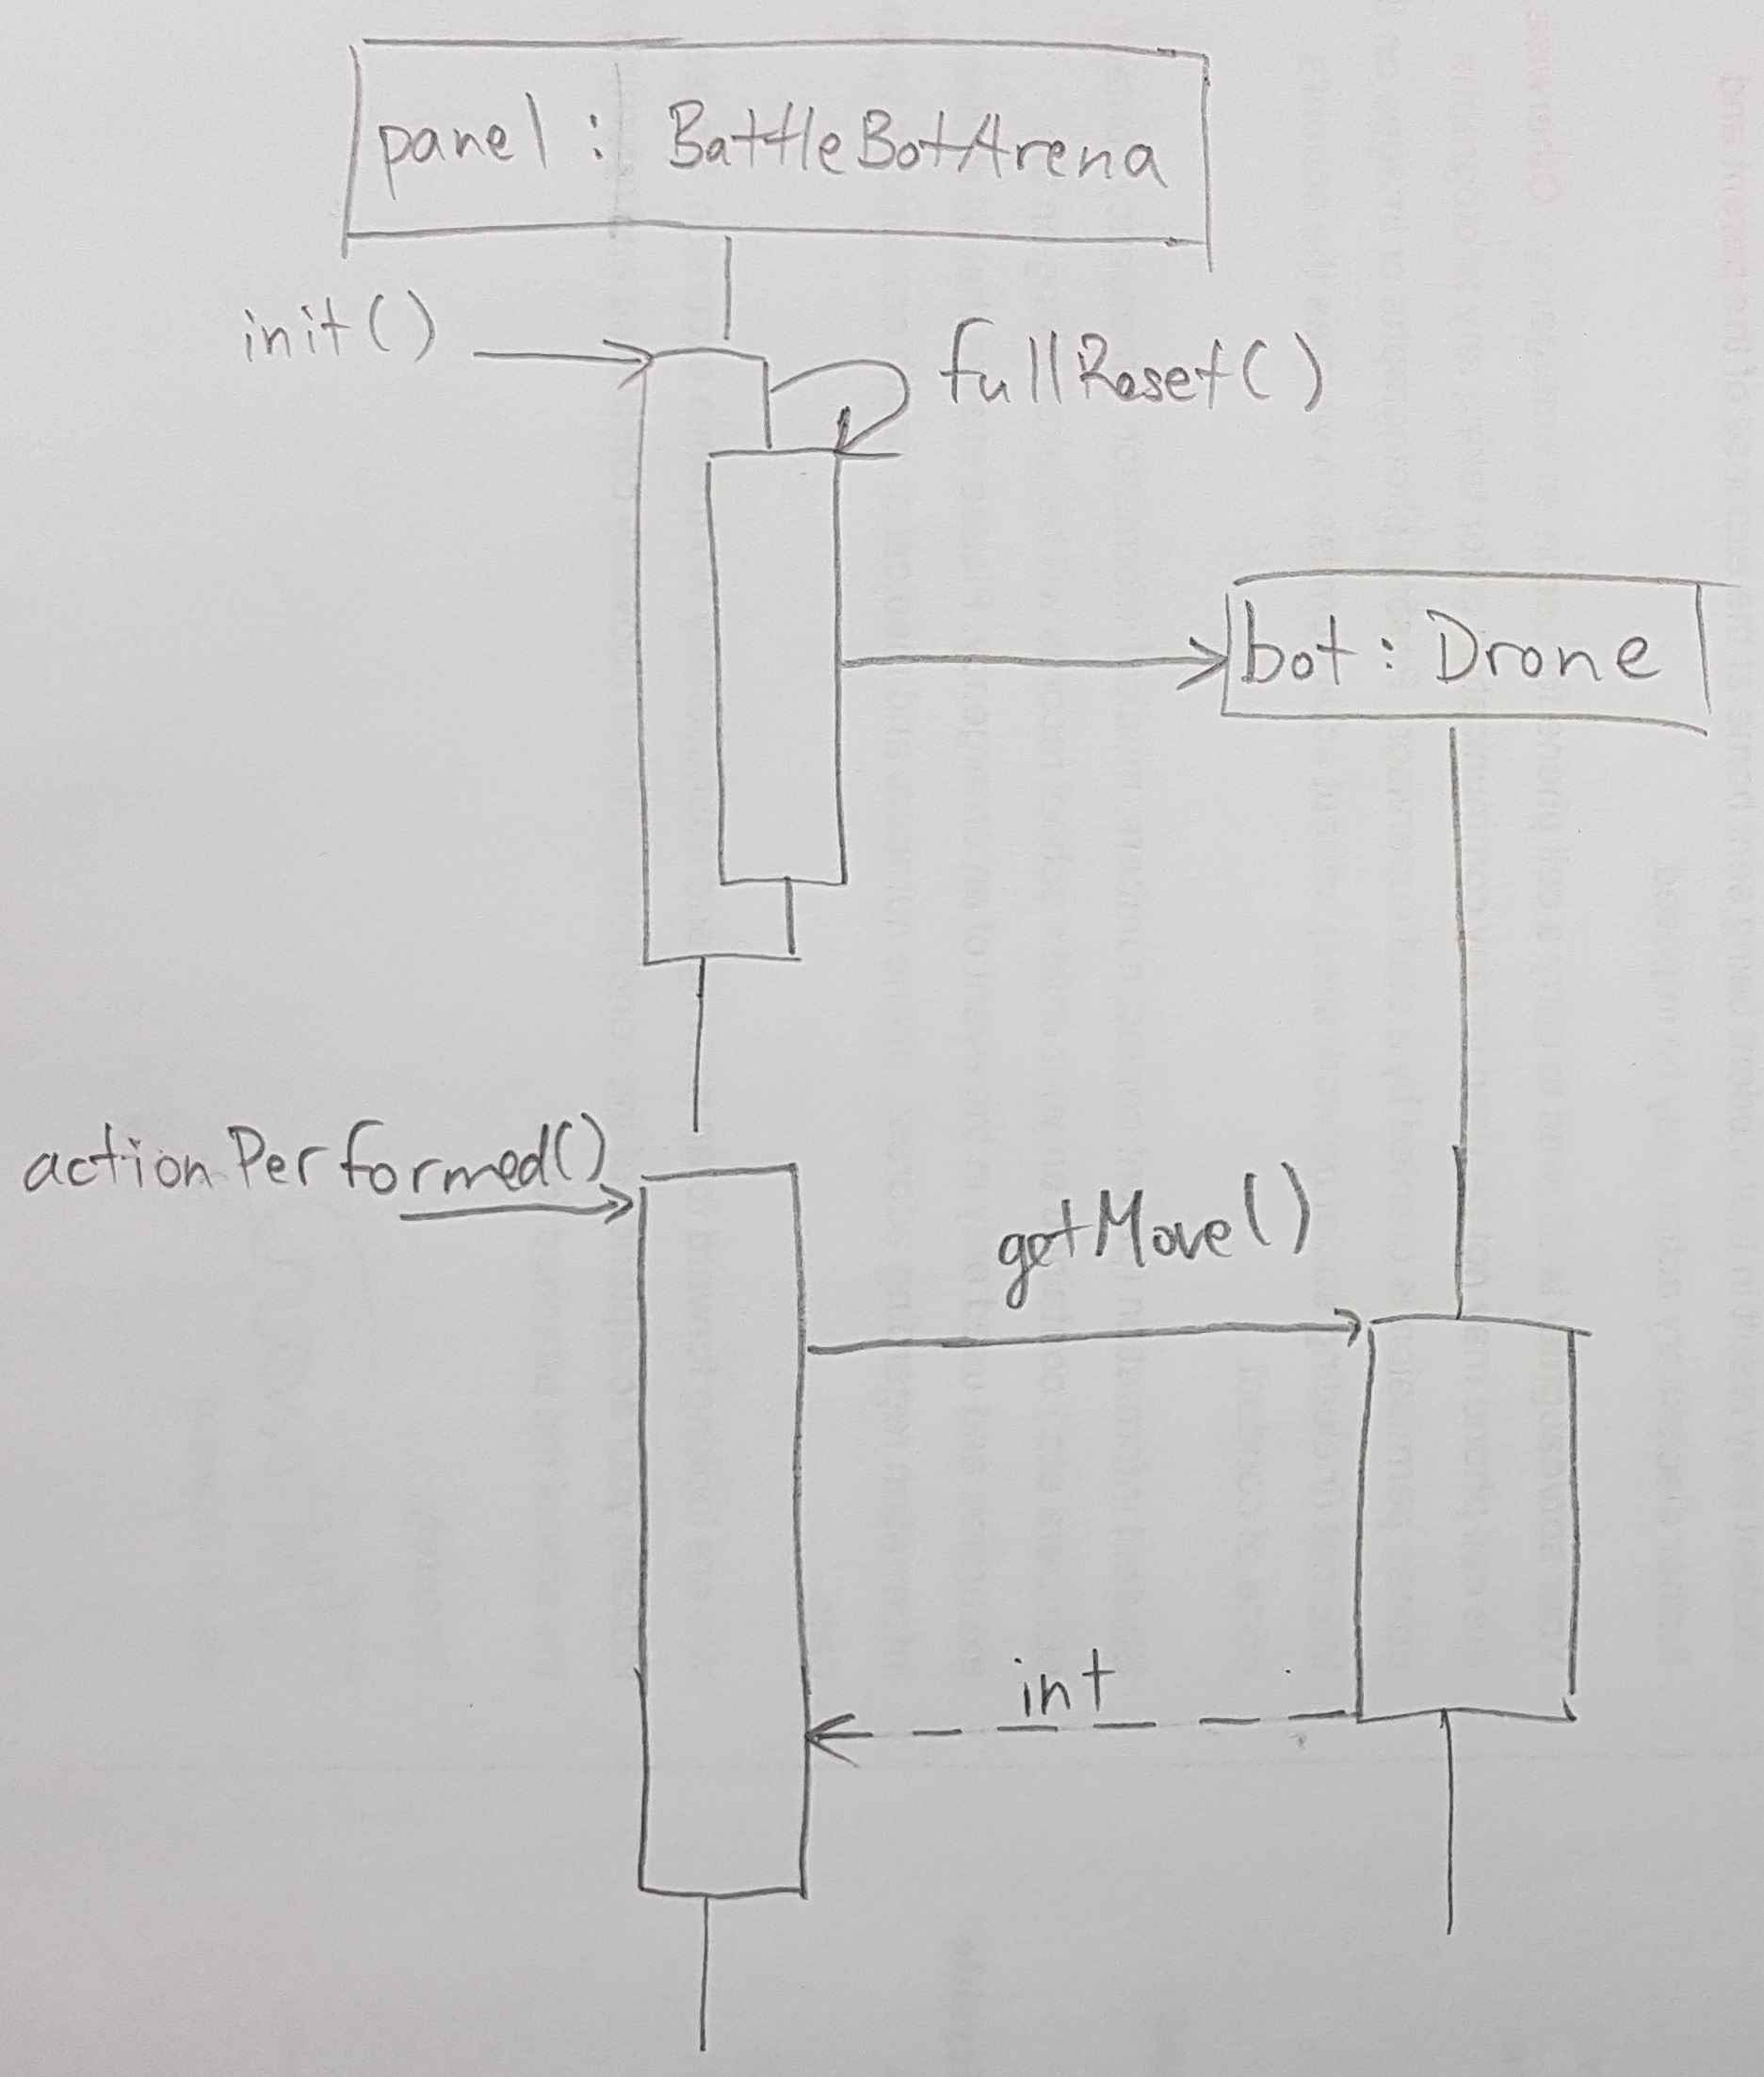 panel : BattleBotArena
init()
fullReset()
bot : Drone
actionPerformed()
getMove()
int